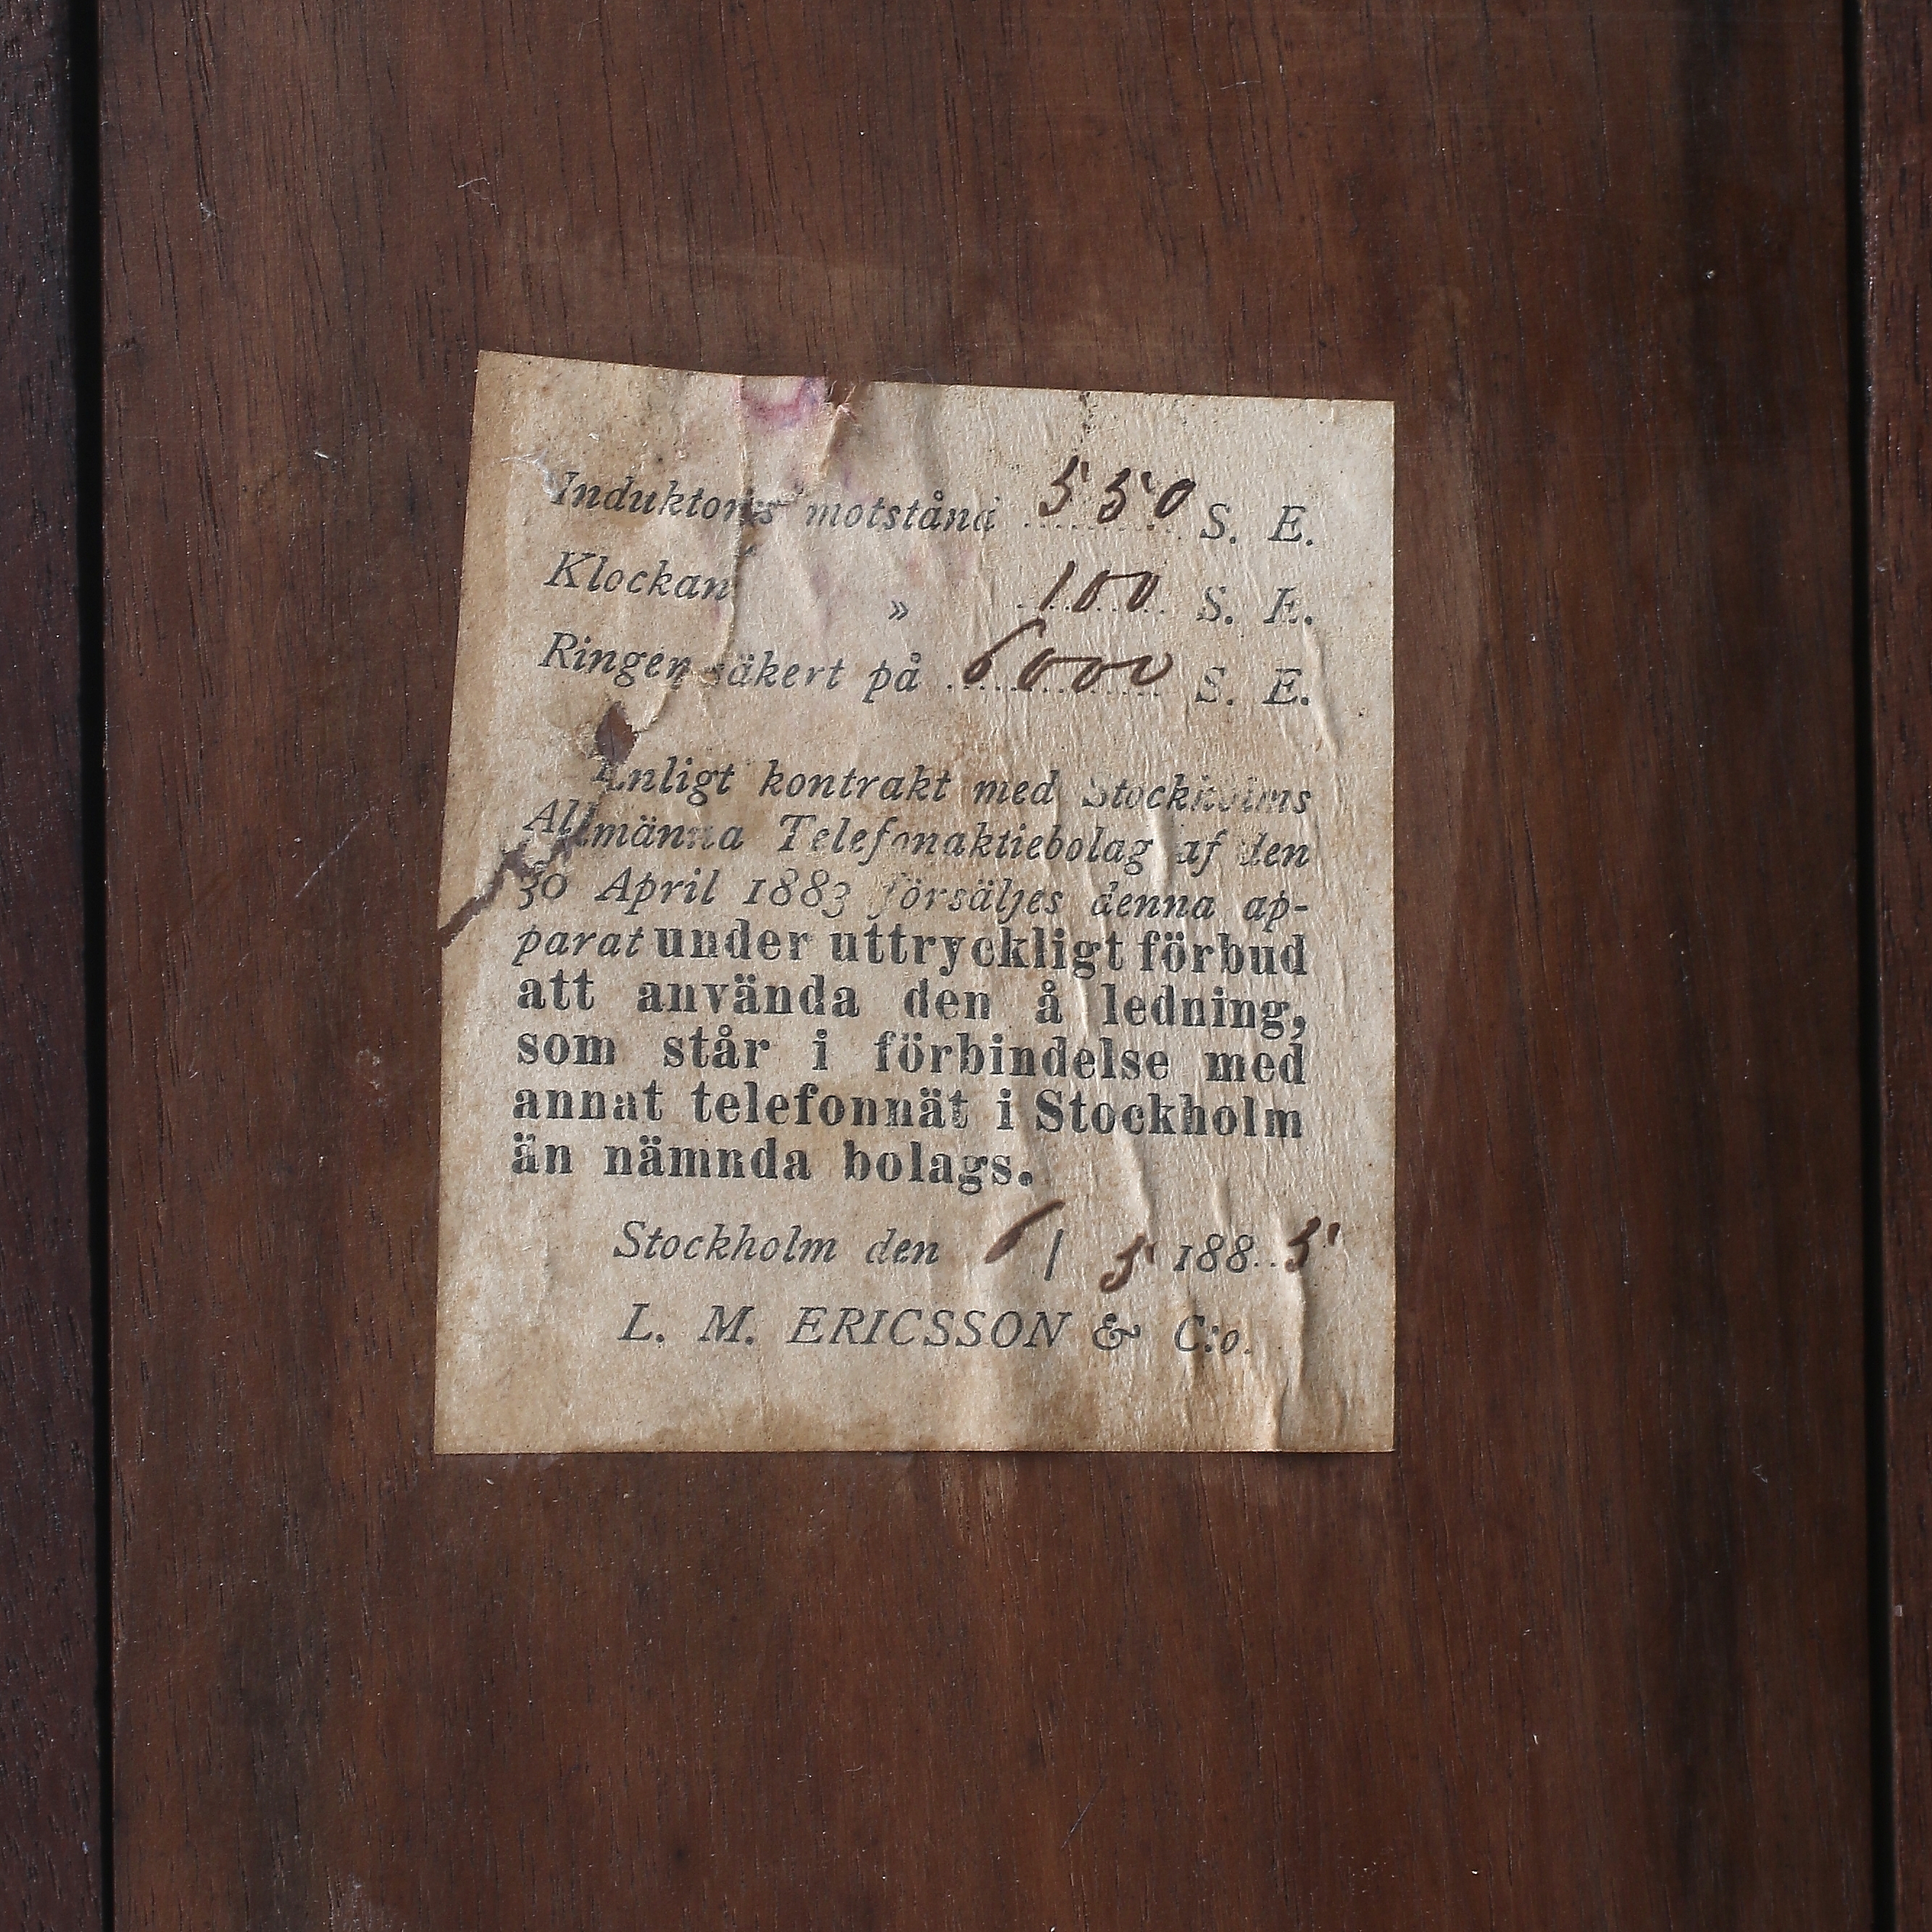 Induktorns motstånd 550 S. E.
Klockan » 100 S. E.
Ringer säkert på 6000 S. E.
Enligt kontrakt med Stockholms
Allmänna Telefonaktiebolag af den
30 April 1883 försäljes denna ap-
parat under uttryckligt förbud
att använda den å ledning,
som står i förbindelse med
annat telefonnät i Stockholm
än nämnda bolags.
Stockholm den 6/5 1885
L. M. ERICSSON & C:o.